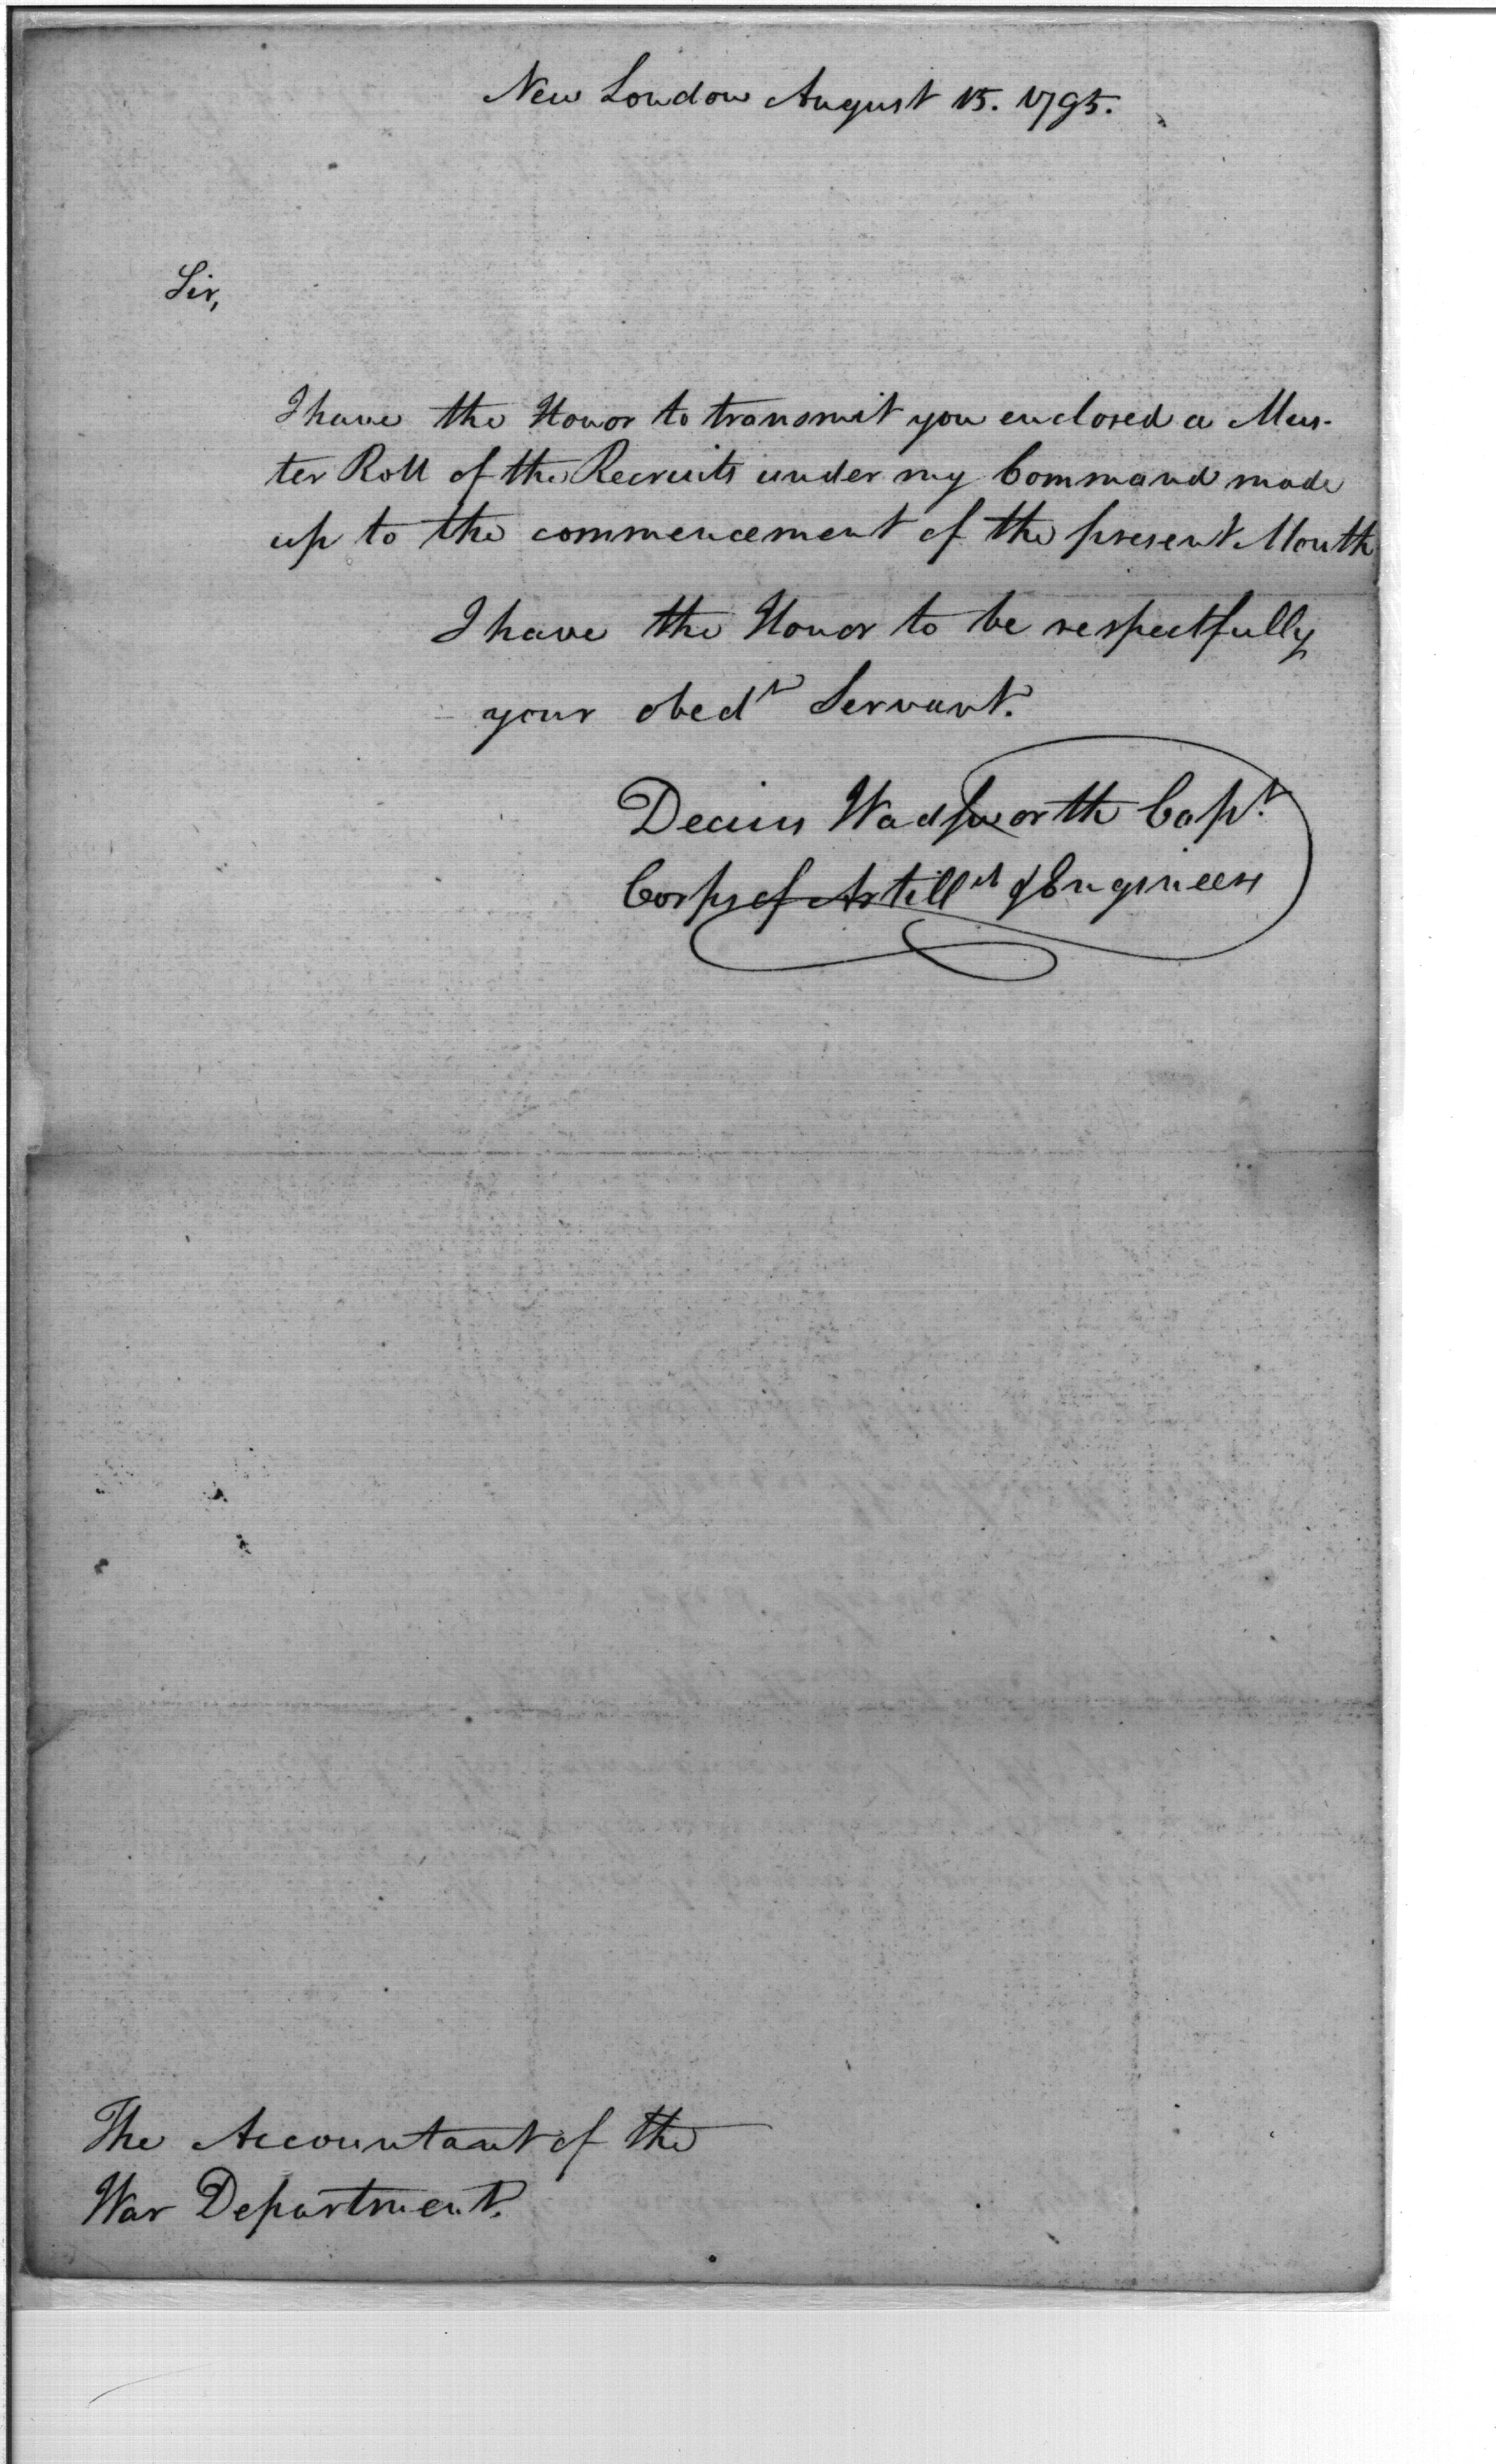 New London August 15. 1795.
Sir,
I have the Honor to transmit you enclosed a Mus-
ter Roll of the Recruits under my Command made
up to the commencement of the present Month
I have the Honor to be respectfully
your obedt Servant.
Decius Wadsworth Capt.
Corps of Artillts & Engineers
The Accountant of the
War Department.